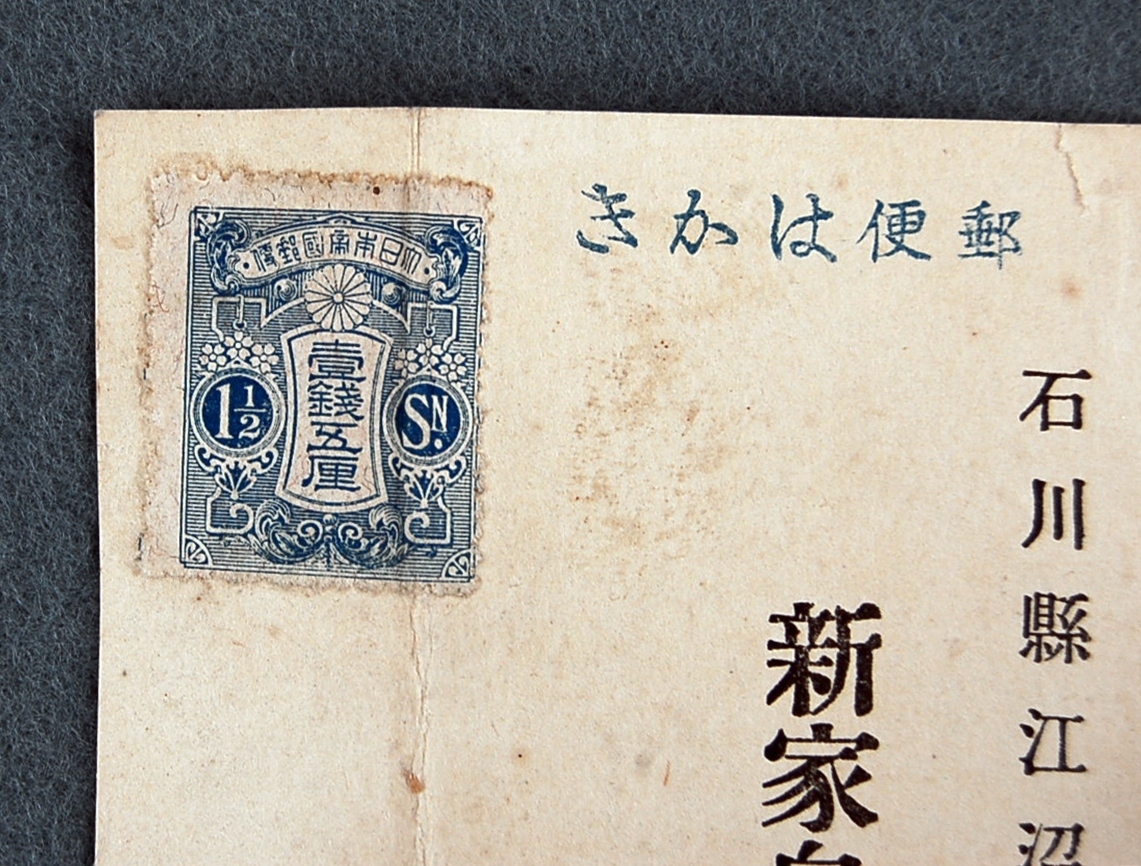 郵便はかき
石川縣江沼
新家
大日本帝國郵便
壹錢五厘
1½
SN.